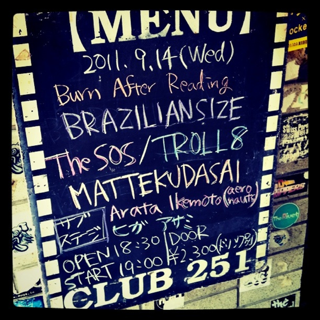 【MENU】
2011. 9.14 (Wed)
Burn After Reading
BRAZILIANSIZE
The SOS/TROLL8
MATTEKUDASAI
Arata Ikemoto (aeronauts)
サブステージ ヒガ アサミ
OPEN 18:30 DOOR
START 19:00 ¥2,300 (ドリンク別)
CLUB 251